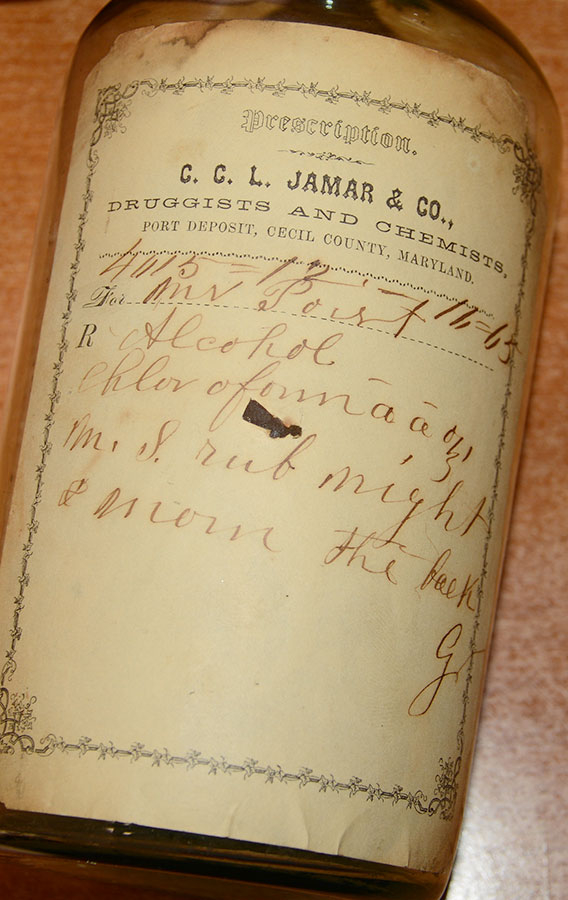 Prescription.
C. C. L. JAMAR & CO.,
DRUGGISTS AND CHEMISTS,
PORT DEPOSIT, CECIL COUNTY, MARYLAND.
4015=12
For Mr Poist
R Alcohol
Chloroform ā ā ℥
M. S. rub night
& morn the back
G